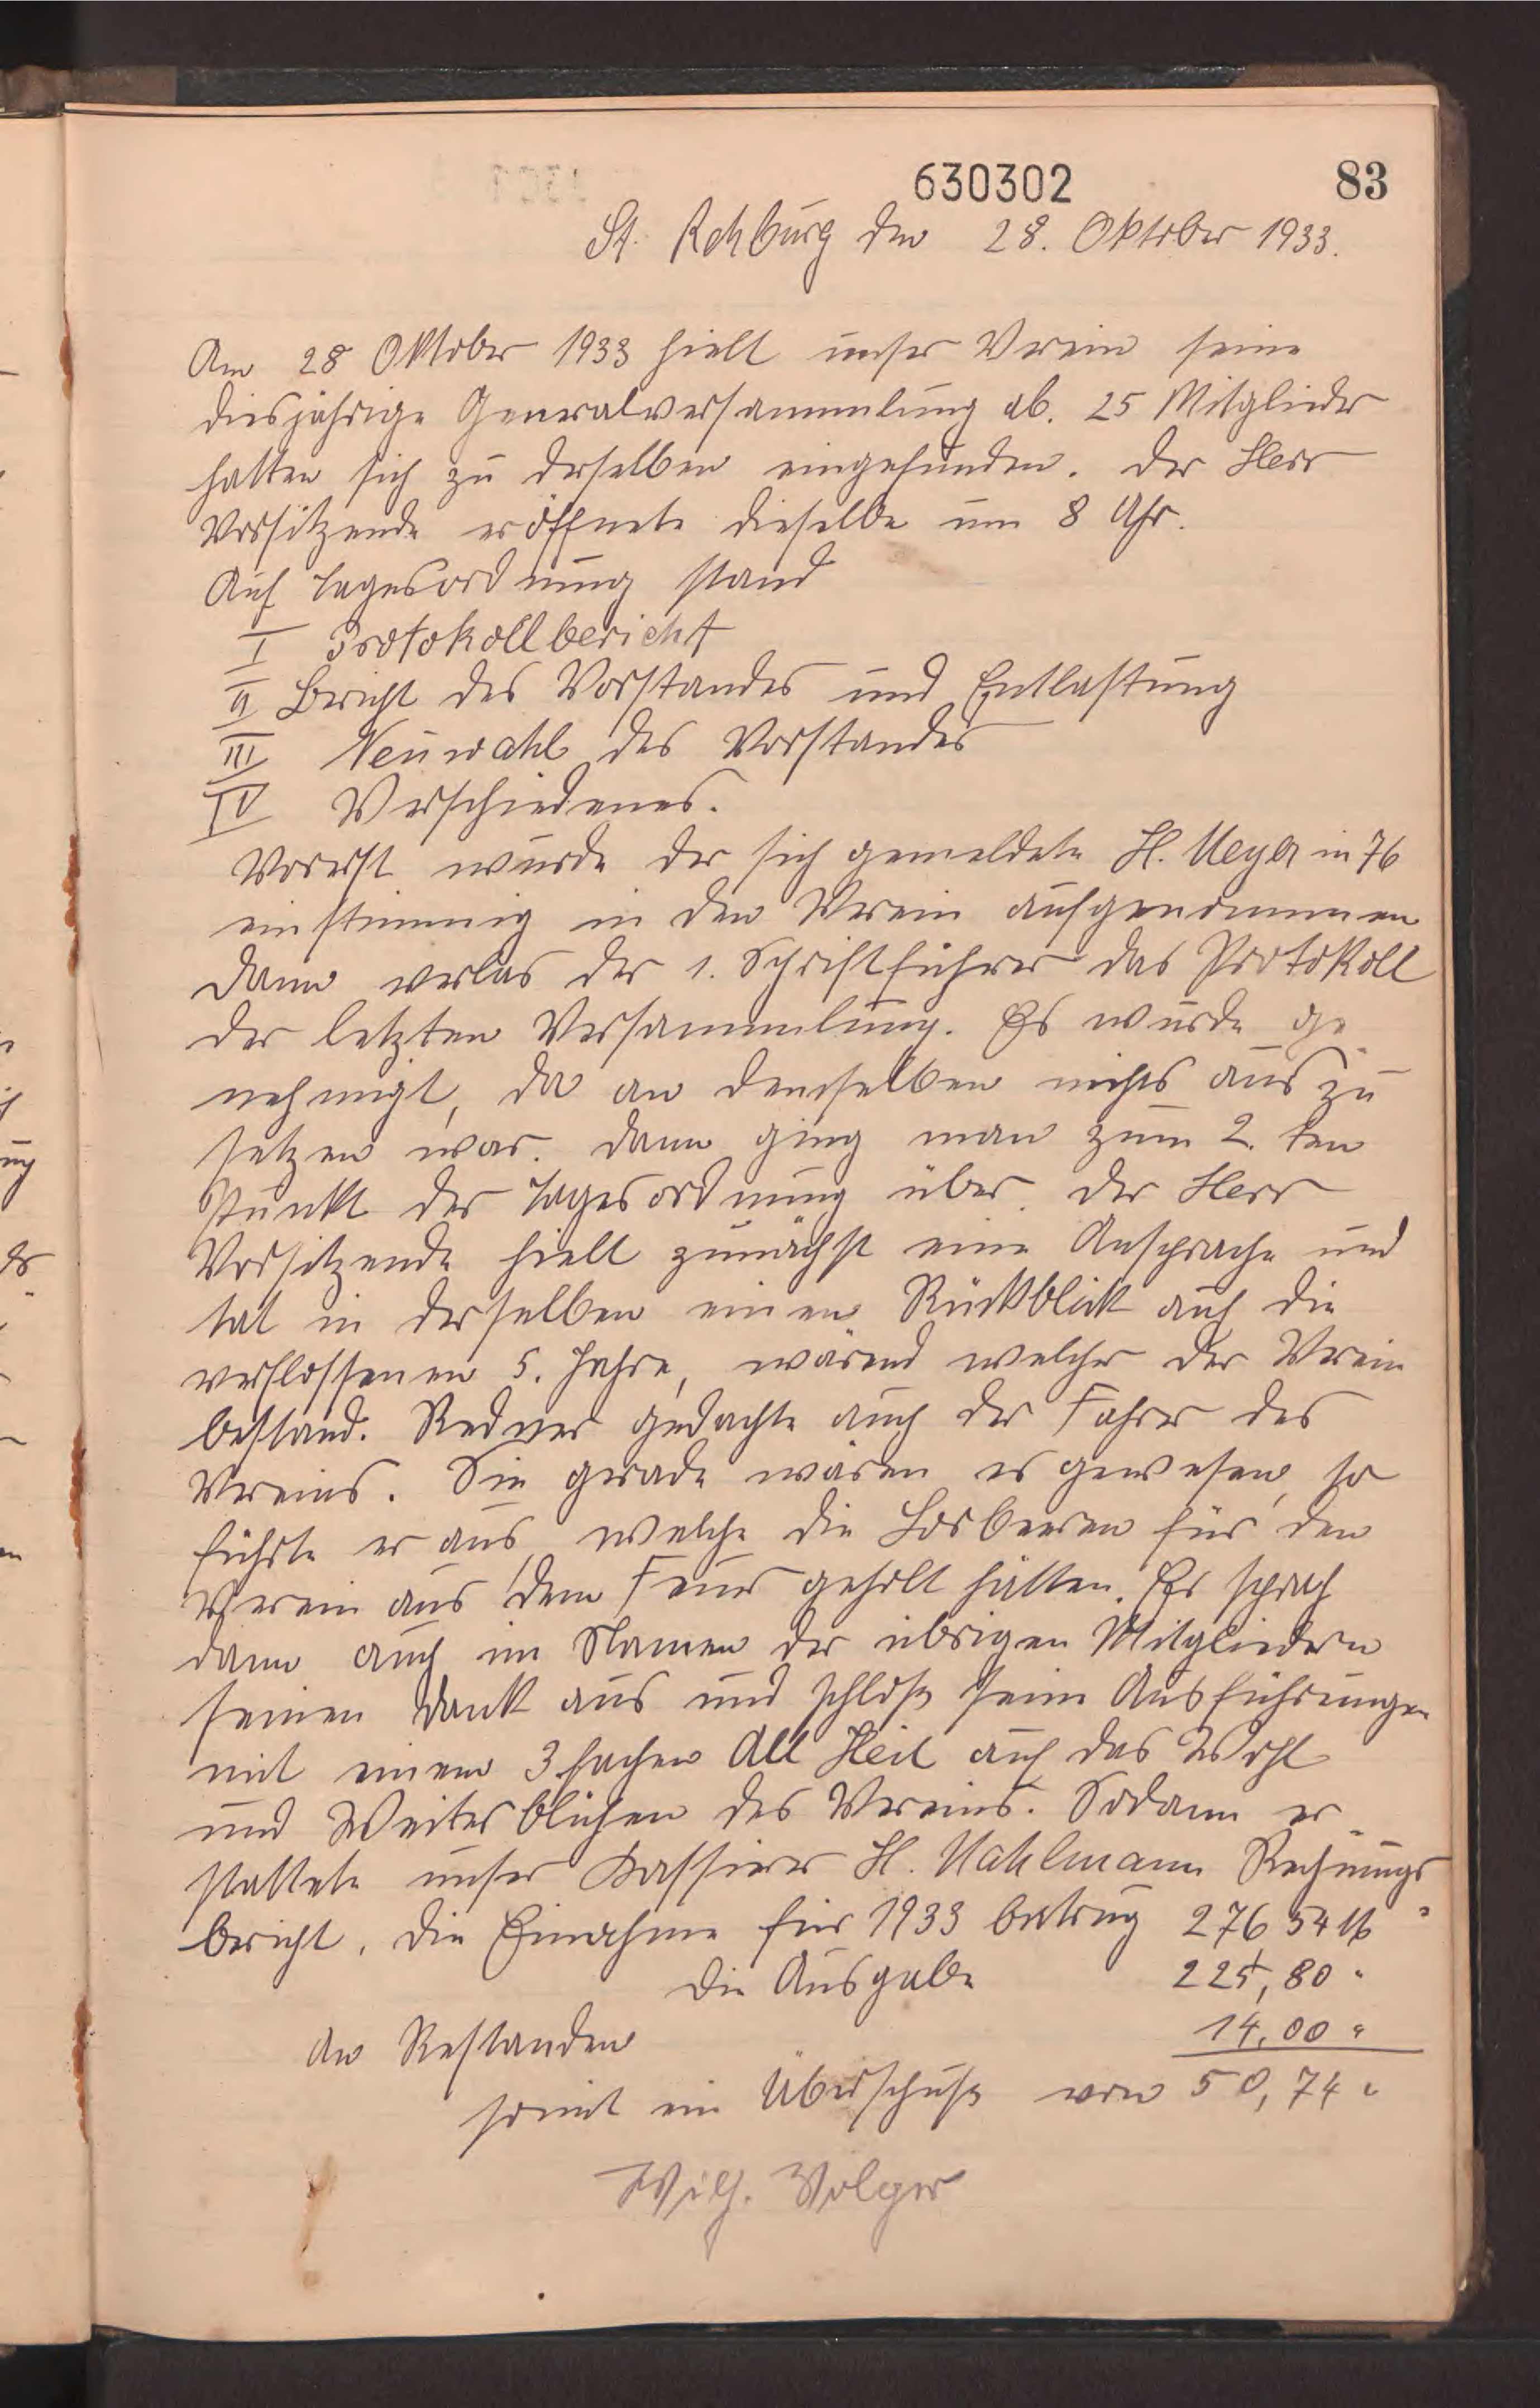 630302 83
St. Rehburg den 28. Oktober 1933.
Am 28 Oktober 1933 hielt unser Verein seine
diesjährige Generalversammlung ab. 25 Mitglieder
hatten sich zu derselben eingefunden. Der Herr
Vorsitzende eröffnete dieselbe um 8 Uhr.
Auf Tagesordnung stand
I Protokollbericht
II Bericht des Vorstandes und Entlastung
III Neuwahl des Vorstandes
IV Verschiedenes.
Vorerst wurde der sich gemeldete H. Meyer in 76
einstimmig in den Verein aufgenommen
Dann verlas der 1. Schriftführer das Protokoll
der letzten Versammlung. Es wurde ge
nehmigt, da an demselben nichts aus zu
setzen war. Dann ging man zum 2. ten
Punkt der Tagesordnung über. Der Herr
Vorsitzende hielt zunächst eine Ansprache und
tat in derselben einen Rückblick auf die
verflossenen 5. Jahre, wärend welcher der Verein
bestand. Redner gedachte auch der Fahrer des
Vereins. Sie gerade wären es gewesen, so
führte er aus, welche die Lorbeeren für den
Verein aus dem Feuer geholt hätten. Er sprach
dann auch im Namen der übrigen Mitgliedern
seinen Dank aus und schloß seine Ausführungen
mit einem 3 fachen All Heil auf das Wohl
und Weiterblühen des Vereins. Sodann er
stattete unser Kassierer H. Mahlmann Rechnungs
bericht. Die Einahme für 1933 betrug 276 54 M
die Ausgabe 225,80 "
An Restanden 14,00 "
somit ein Überschuß von 50,74 "
Wilh. Volger